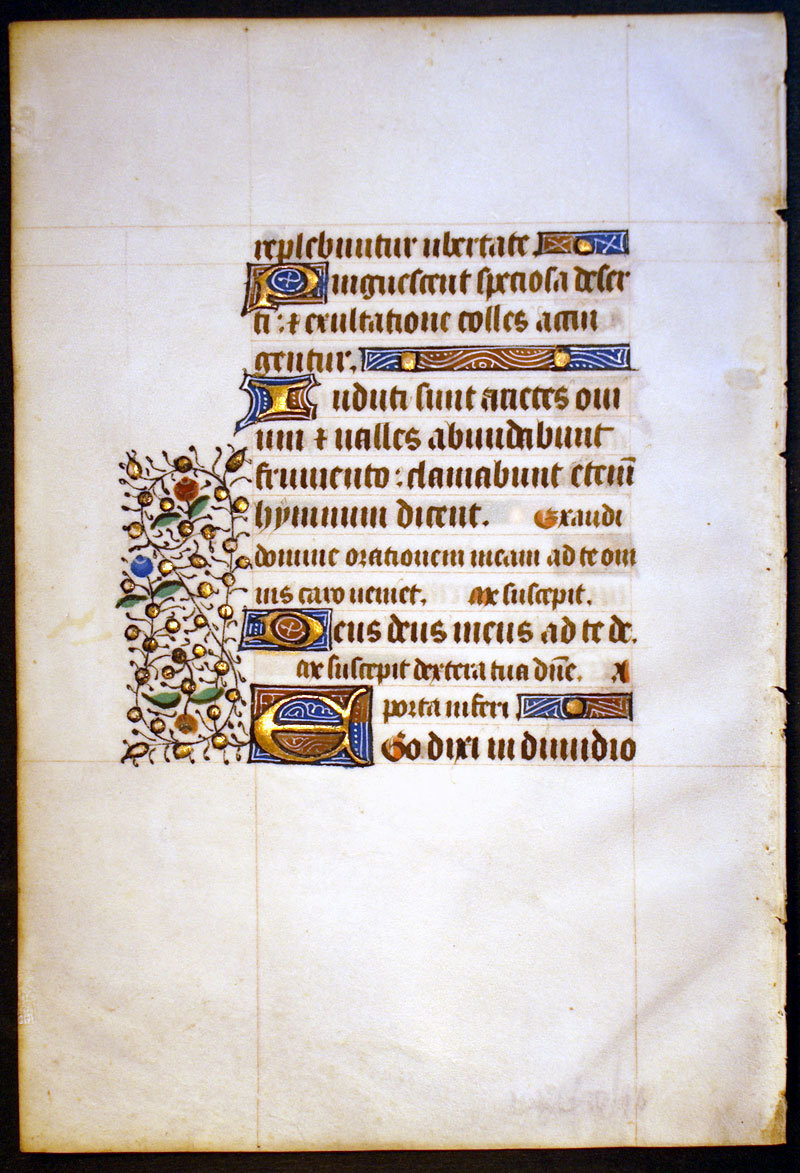 replebuntur ubertate.
Pinguescent speciosa deser
ti: ⁊ exultatione colles accin
gentur.
Induti sunt arietes oui
um ⁊ ualles abundabunt
frumento: clamabunt eteni̅
hÿmnum dicent. Exaudi
domine orationem meam ad te om
nis caro ueniet. ax suscepit.
Deus deus meus ad te de.
ax suscepit dextera tua dn̅e. A
porta inferi
Ego dixi in dimidio